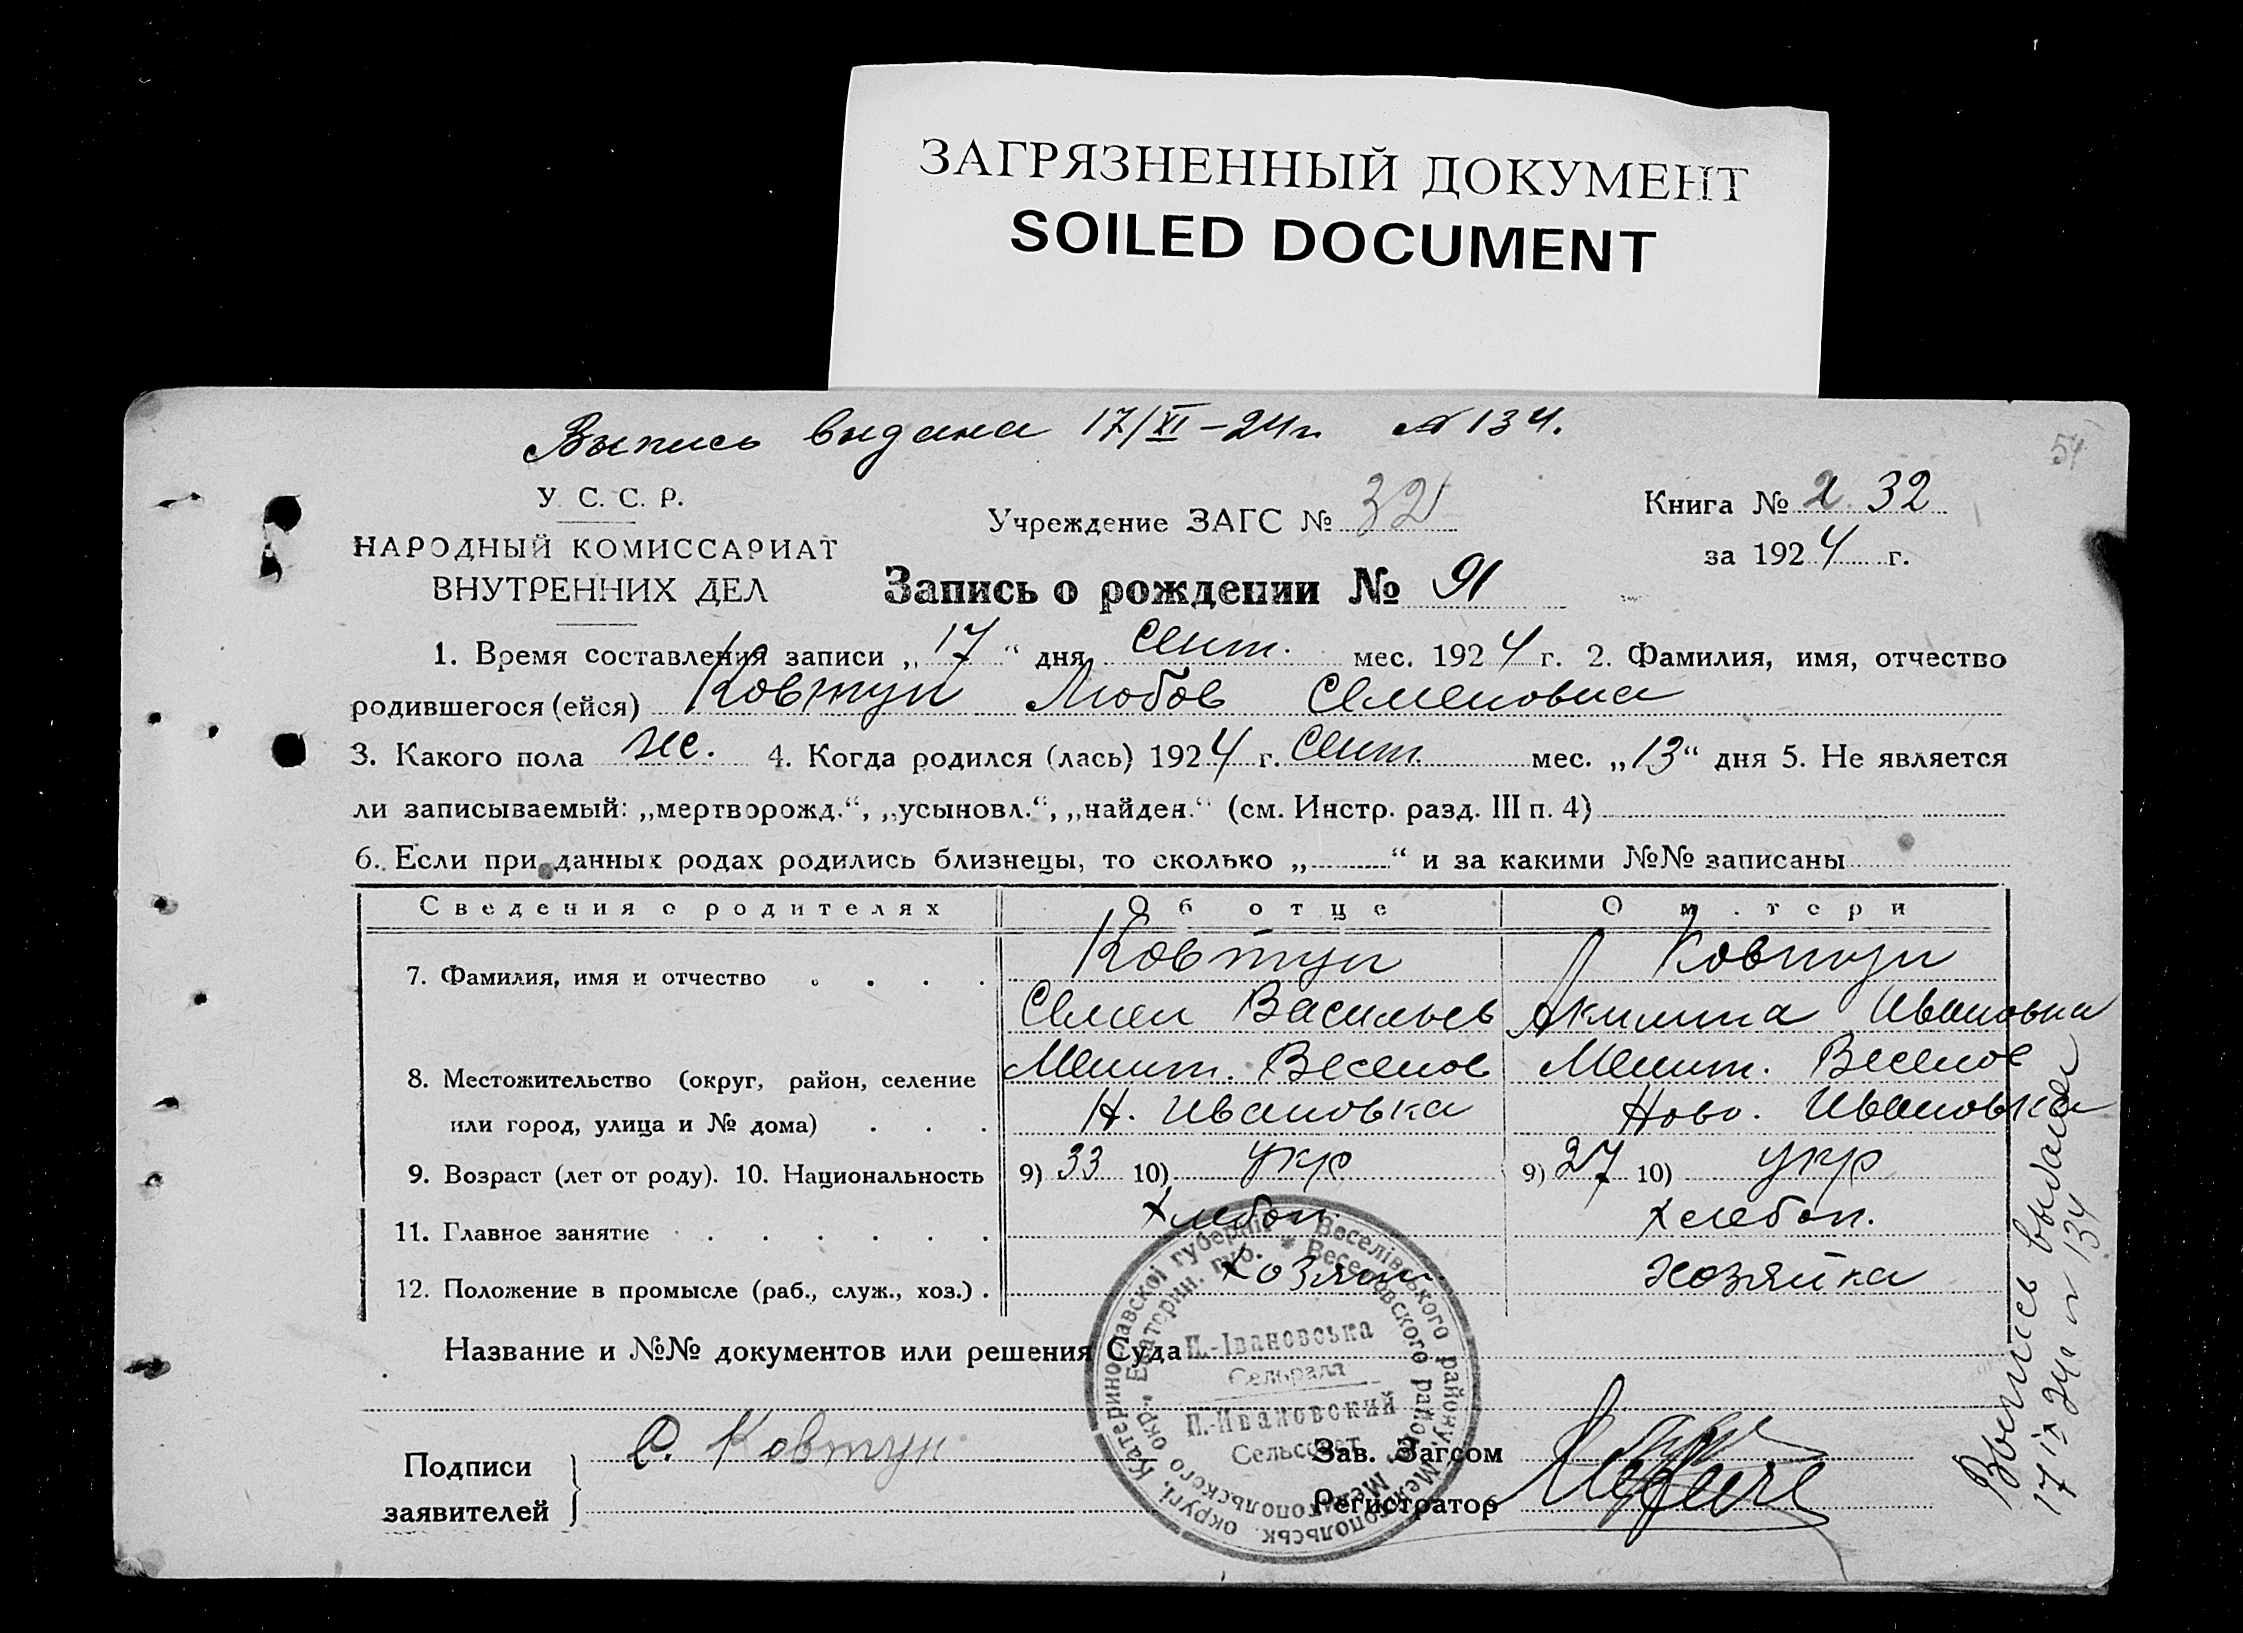 ЗАГРЯЗНЕННЫЙ ДОКУМЕНТ
SOILED DOCUMENT
Выпись выдана 17/XI-24г. № 134.
54
У. С. С. Р.
НАРОДНЫЙ КОМИССАРИАТ
ВНУТРЕННИХ ДЕЛ
Учреждение ЗАГС № 32
Книга № 2 32
за 1924 г.
Запись о рождении № 91
1. Время составления записи „17“ дня сент. мес. 1924 г. 2. Фамилия, имя, отчество
родившегося (ейся) Ковтун Любов Семеновна
3. Какого пола же. 4. Когда родился (лась) 1924 г. сент. мес. „13“ дня 5. Не является
ли записываемый: „мертворожд.“, „усыновл.“, „найден.“ (см. Инстр. разд. III п. 4)
6. Если при данных родах родились близнецы, то сколько „ “ и за какими №№ записаны
Сведения о родителях Об отце О м.тери
7. Фамилия, имя и отчество Ковтун Ковтун
Семен Васильев Акилина Ивановна
8. Местожительство (округ, район, селение Мелит. Веселов Мелит. Веселов
или город, улица и № дома) Н. Ивановка Ново. Ивановка
9. Возраст (лет от роду). 10. Национальность 9) 33 10) укр 9) 27 10) укр
11. Главное занятие Хлебоп. Хлебоп.
12. Положение в промысле (раб., служ., хоз.) Хозяин хозяйка
Название и №№ документов или решения Суда
Подписи
заявителей
С. Ковтун
Зав. Загсом
Регистратор
Катеринославскої губерні * Веселівського району, Мелітопольськ. округі.
Екатерин. губ. * Веселовского района, Мелитопольского окр.
Н.-Івановська
Сельрада
Н.-Ивановский
Сельсовет
Выпись выдана
17 IX 24г. № 134